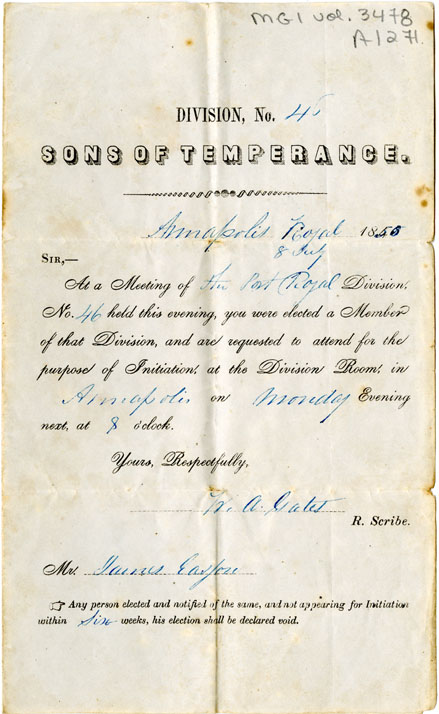 MG1 vol. 3478
A127.1
DIVISION, No. 45
SONS OF TEMPERANCE.
Annapolis Royal 1855
8 July
SIR,—
At a Meeting of the Port Royal Division,
No. 46 held this evening, you were elected a Member
of that Division, and are requested to attend for the
purpose of Initiation, at the Division Room, in
Annapolis on Monday Evening
next, at 8 o'clock.
Yours, Respectfully,
A. Gates
R. Scribe.
Mr. James
☞ Any person elected and notified of the same, and not appearing for Initiation
within Six weeks, his election shall be declared void.